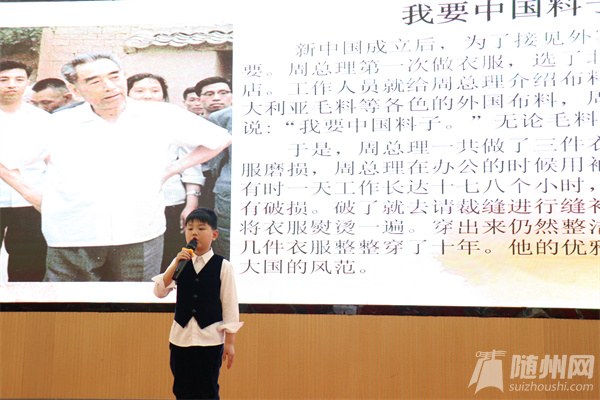 我要中国料子
新中国成立后，为了接见外
要。周总理第一次做衣服，选了北
店。工作人员就给周总理介绍布料
大利亚毛料等各色的外国布料，周
说：“我要中国料子。”无论毛料
于是，周总理一共做了三件衣
服磨损，周总理在办公的时候用袖
有时一天工作长达十七八个小时，
有破损。破了就去请裁缝进行缝补
将衣服熨烫一遍。穿出来仍然整洁
几件衣服整整穿了十年。他的优雅
大国的风范。
随州网
suizhoushi.com